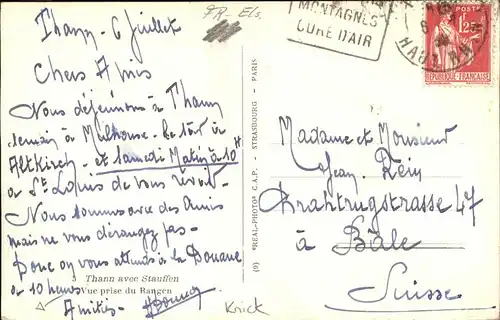 FR-Els.
MONTAGNES
CURE D'AIR
POSTES
1F25
REPUBLIQUE FRANÇAISE
HAUT RHIN
Thann 6 Juillet
Chers Amis
Nous déjeunons à Thann
demain à Mulhouse - Le soir à
Altkirch - et Samedi Matin à 10h
à St Louis de vous revoir -
Nous sommes avec des Amis
mais ne vous dérangez pas -
Donc on vous attends à la Douane
à 10 heures
Amitiés -
Thann avec Stauffen
Vue prise du Rangen
(9) "REAL-PHOTO" C.A.P. - STRASBOURG - PARIS
Madame et Monsieur
Jean
47
à Bâle
Suisse
Knick